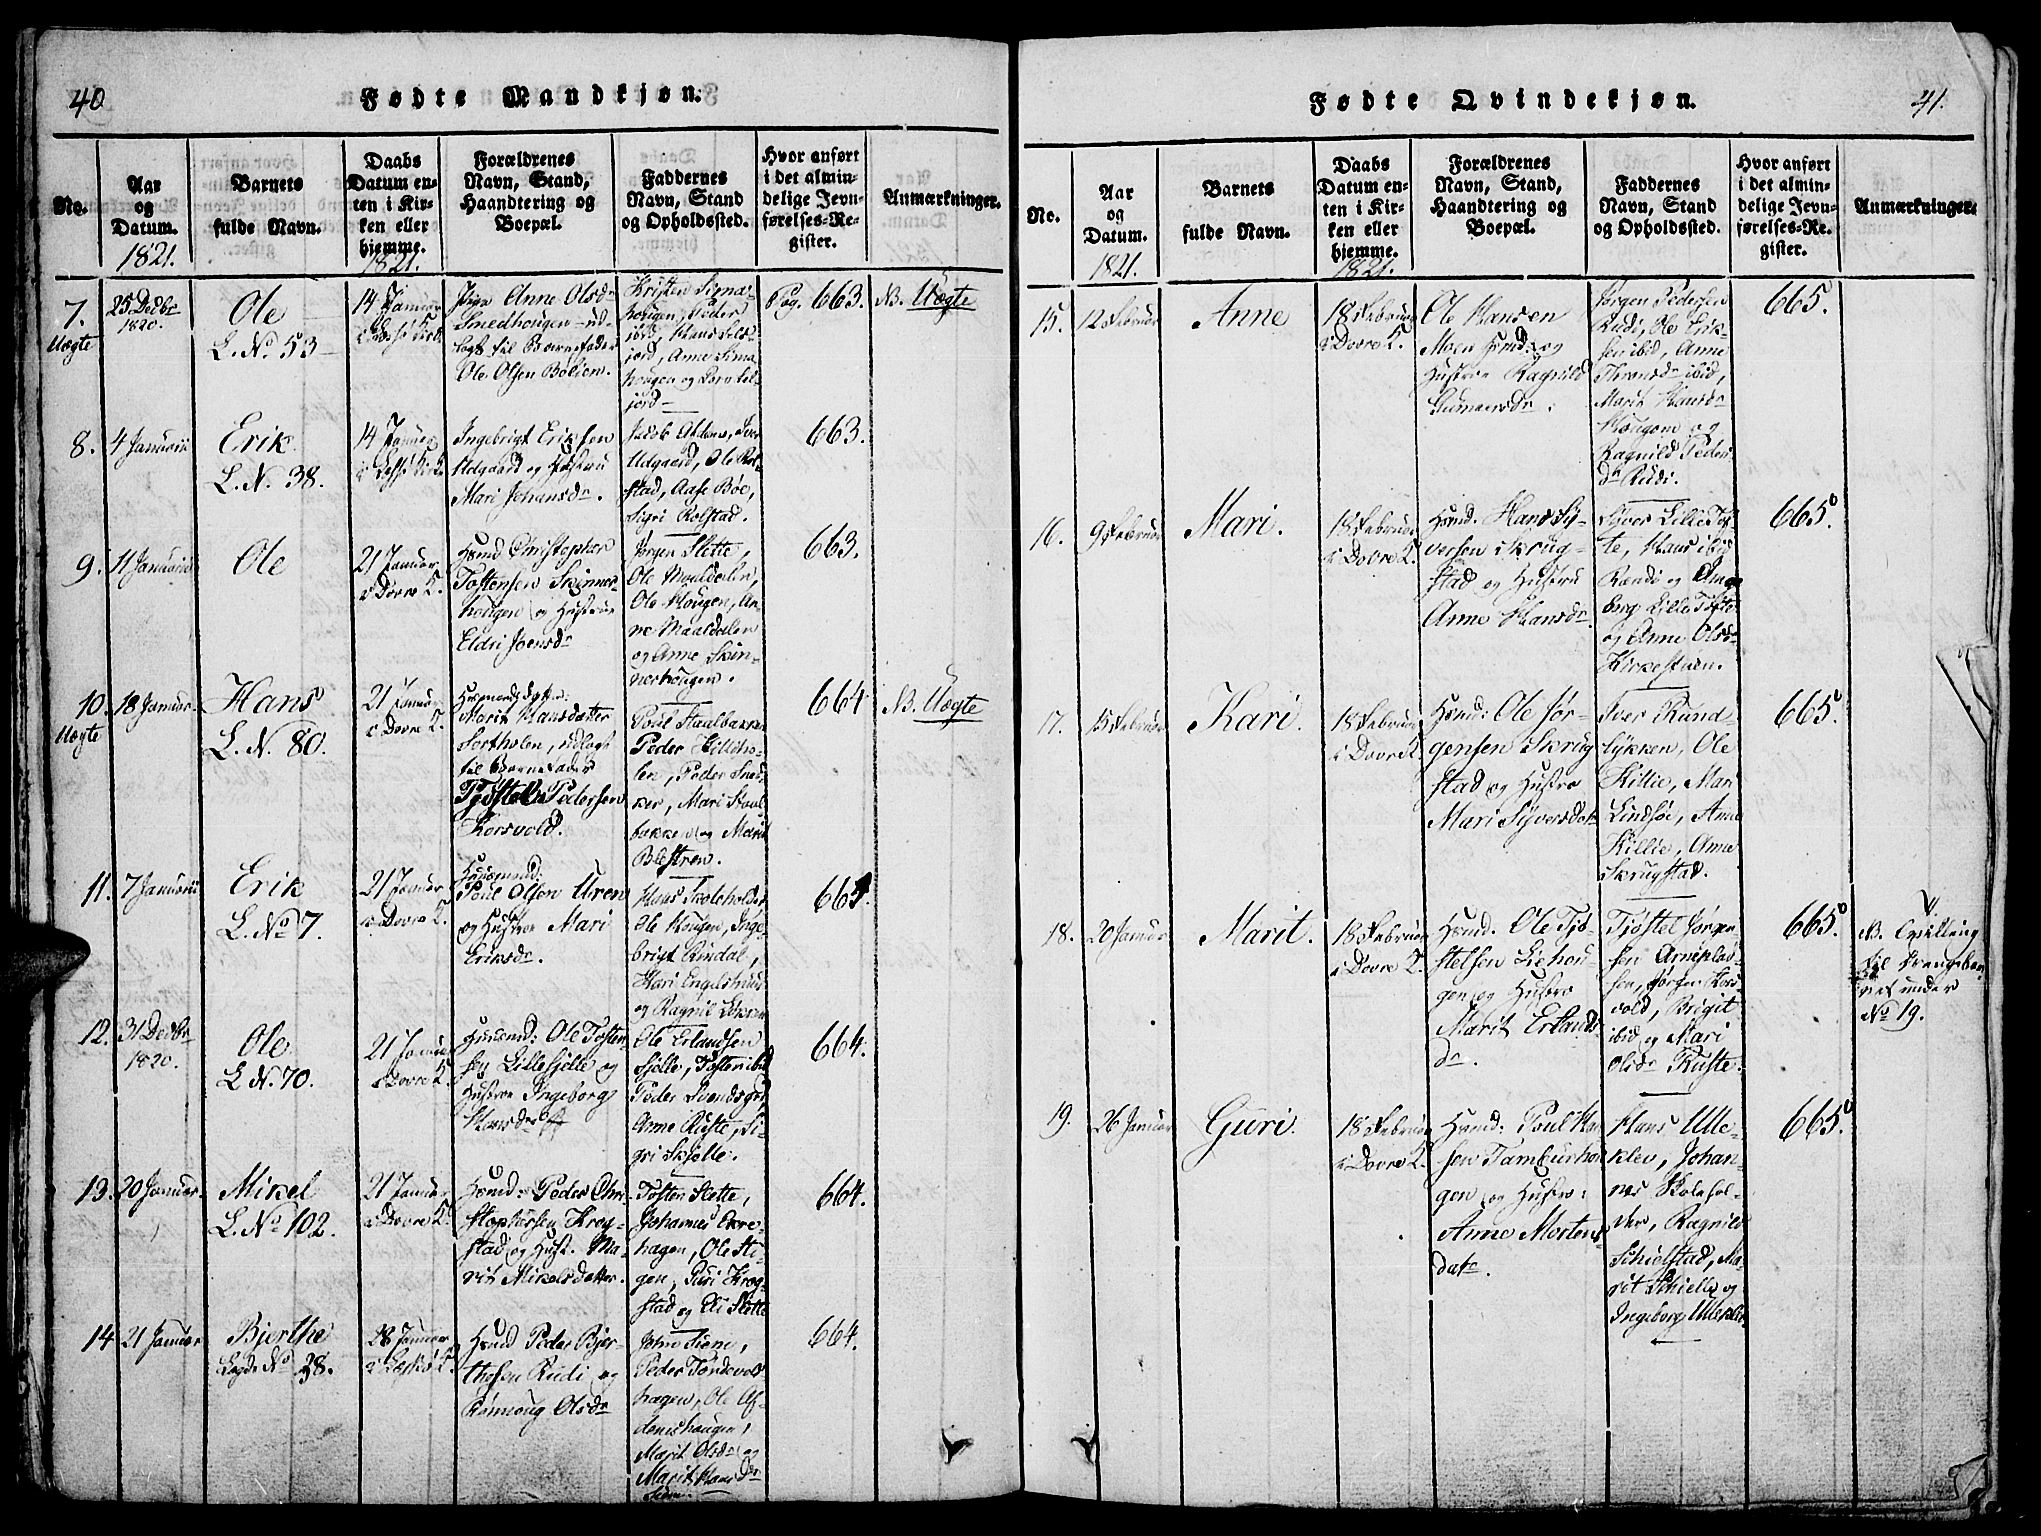 40
Fødte Mandkjøn.
No.
Aar
og
Datum.
1821.
Barnets
fulde Navn.
Daabs
Datum en-
ten i Kir-
ken eller
hjemme.
1821.
Forældrenes
Navn, Stand,
Haandtering og
Boepæl.
Faddernes
Navn, Stand
og Opholdssted.
Hvor anført
i det almin-
delige Jevn-
førelses-Re-
gister.
Anmærkninger.
7.
Uægte
25 Decbr
1820.
Ole
L. No 53
14 Januar
Pige Anne Olsdr
Smedhougen - ud-
lagt til Barnefader
Ole Olsen Bolien.
Kristen
hougen, Peder
jord, Hans
jord, Anne
hougen og
jord
Pag. 663.
NB. Uægte
8.
4 Januarii
Erik
L. N. 38.
14 Januar
Ingebrigt Eriksen
Udgaard og Hustru
Mari Johansdr.
Jacob, Iver
Udgaard, Ole Rol-
stad, Aase Bøe,
Sigri Rolstad.
663.
9.
11 Januarii
Ole
21 Januar
i Dovre K.
Hsmd Christopher
Tostensen Skinner-
hougen og Hustrue
Eldri Joensdr
Jørgen Slette,
Ole
Ole Hougen, An-
ne
og Anne Skin-
nerhougen.
663.
10.
Uægte
18 Januar
Hans
L. N. 80.
21 Januar
i Dovre K.
Huusmandsdatter:
Marit Hansdatter
udlagt
til Barnefader
Tjøstel Pedersen
Korsvold.
Poul Staalbakken
Peder Hillieho-
len, Peder Sned-
ker, Mari Staal-
bakken og Marit
Blestren.
664
NB. Uægte
11.
7 Januarii
Erik
L. No 7.
21 Januar
i Dovre K.
Huusmand:
Poul Olsen Uren
og Hustroe Mari
Eriksdr.
Hans Skoleholder
Ole Hougen, Inge-
brigt Rindal,
Kari Engelshuus
og Ragnil
664.
12.
31 Decbr
1820.
Ole
L N. 70.
21 Januar
i Dovre K.
Huusmd: Ole Tosten-
sen Lillesjølle og
Hustroe Ingeborg
Hansdr
Ole Erlandsen
Sjølle, Tosten ibid
Peder
Anne Ruste, Si-
gri Skjølle.
664.
13.
20 Januar.
Mikel
L. No 102.
21 Januar
i Dovre K.
Hsmd: Peder Chri-
stophersen Krog-
stad og Hust. Ma-
rit Mikelsdatter.
Tosten Slette,
Johannes
hagen, Ole Sti-
gen, Guri Krog-
stad og Eli Slette
664.
14
21 Januar
Bjerthe
Lagds No 38.
28 Januar
Hsmd Peder Bjer-
thesen Rudi og
Rønnoug Olsdr
John
Peder Tordevols
hagen, Ole
hougen,
Marit Olsdr og
Marit Hansdr
664.
Fødte Qvindekjøn.
41.
No.
Aar
og
Datum.
1821.
Barnets
fulde Navn.
Daabs
Datum en-
ten i Kir-
ken eller
hjemme.
1821.
Forældrenes
Navn, Stand,
Haandtering og
Boepæl.
Faddernes
Navn, Stand
og Opholdssted.
Hvor anført
i det almin-
delige Jevn-
førelses-Re-
gister.
Anmærkninger.
15.
12 Februar
Anne
18 Februar
i Dovre K.
Ole Hansen
Moen Hsmd: og
Hustroe Ragnild
Gumansdr.
Jørgen Pedersen
Rudi, Ole Erik-
sen ibid, Anne
ibid,
Marit Hansdr
Hougom og
Ragnild Peders
dr Rudi.
665.
16.
9 Februar
Mari.
18 Februar
i Dovre K.
Hsmd. Hans Sy-
versen Skrug-
stad og Hustru
Anne Hansdr.
Syver Lille Tof-
te, Hans ibid
Randi og Inge-
borg Lille Tofte
og Anne Olsdr
Kirkestuen.
665.
17.
15 Februar
Kari.
18 Februar
i Dovre K.
Hsmd: Ole Jør-
gensen Skrug
stad og Hustroe
Mari Syversdatr
Iver Rund
lykken, Ole
Killie, Mari
Lindsøe, Anne
Killie, Anne
Skrugstad.
665.
18.
20 Januar
Marit.
18 Februar
i Dovre K.
Hsmd. Ole Tjø-
stelsen Liehou-
gen og Hustroe
Marit Erlands
dr.
Tjøstel Jørgen
sen Arneplad-
sen, Jørgen Kors
vold, Brigit
ibid og Mari
Olsdr Ruste.
665.
NB. Tvilling
til Drengebar-
net under
No 19.
19.
26 Januar
Guri.
18 Februar
i Dovre K.
Hsmd: Poul Han
sen Tamburhou
gen og Hustroe:
Anne Mortens
datr.
Hans Ulle-
klev, Johan-
nes Skolehol-
der, Ragnild
Schielstad, Ma-
rit Schielle og
Ingeborg Ulleklev.
665.